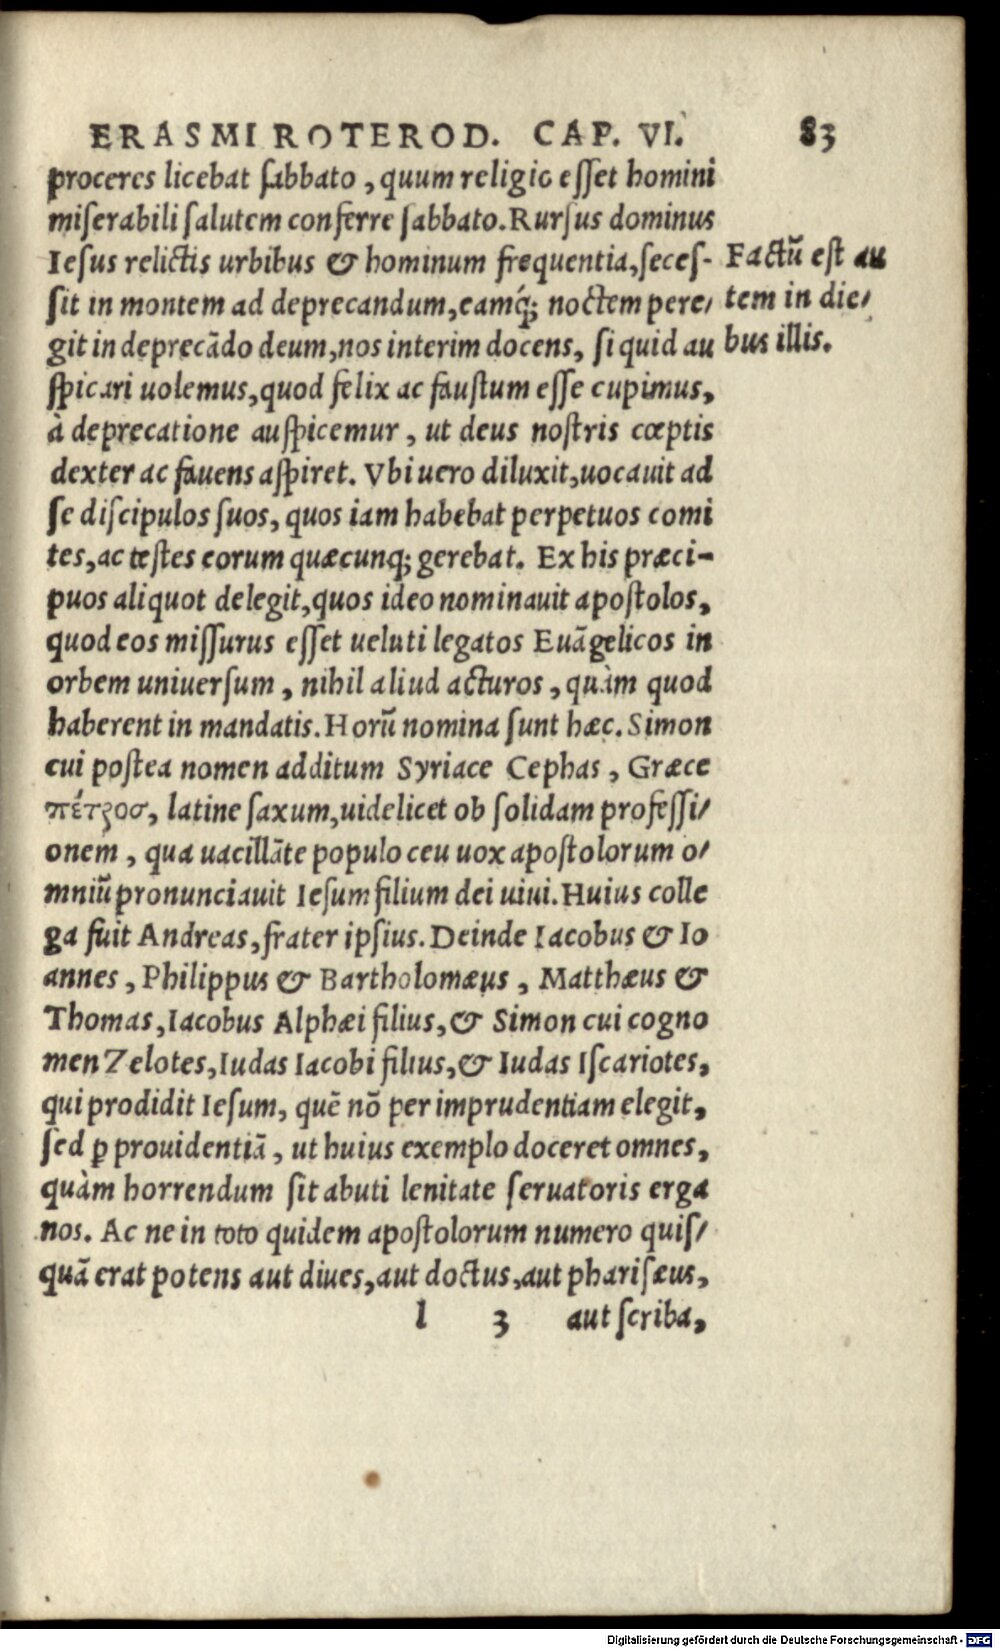 ERASMI ROTEROD. CAP. VI. 83
proceres licebat sabbato, quum religio esset homini
miserabili salutem conferre sabbato. Rursus dominus
Iesus relictis urbibus & hominum frequentia, seces-
sit in montem ad deprecandum, eamq́; noctem pere/
git in deprecãdo deum, nos interim docens, si quid au
spicari uolemus, quod felix ac faustum esse cupimus,
à deprecatione auspicemur, ut deus nostris cœptis
dexter ac fauens aspiret. Vbi uero diluxit, uocauit ad
se discipulos suos, quos iam habebat perpetuos comi
tes, ac testes eorum quæcunq; gerebat. Ex his præci-
puos aliquot delegit, quos ideo nominauit apostolos,
quod eos missurus esset ueluti legatos Euãgelicos in
orbem uniuersum, nihil aliud acturos, quàm quod
haberent in mandatis. Horũ nomina sunt hæc. Simon
cui postea nomen additum Syriace Cephas, Græce
πέτροσ, latine saxum, uidelicet ob solidam professi/
onem, qua uacillãte populo ceu uox apostolorum o/
mniũ pronunciauit Iesum filium dei uiui. Huius colle
ga fuit Andreas, frater ipsius. Deinde Iacobus & Io
annes, Philippus & Bartholomæus, Matthæus &
Thomas, Iacobus Alphæi filius, & Simon cui cogno
men Zelotes, Iudas Iacobi filius, & Iudas Iscariotes,
qui prodidit Iesum, quẽ nõ per imprudentiam elegit,
sed ꝑ prouidentiã, ut huius exemplo doceret omnes,
quàm horrendum sit abuti lenitate seruatoris erga
nos. Ac ne in toto quidem apostolorum numero quis/
quã erat potens aut diues, aut doctus, aut pharisæus,
l 3 aut scriba,
Factũ est au
tem in die/
bus illis.
Digitalisierung gefördert durch die Deutsche Forschungsgemeinschaft - DFG